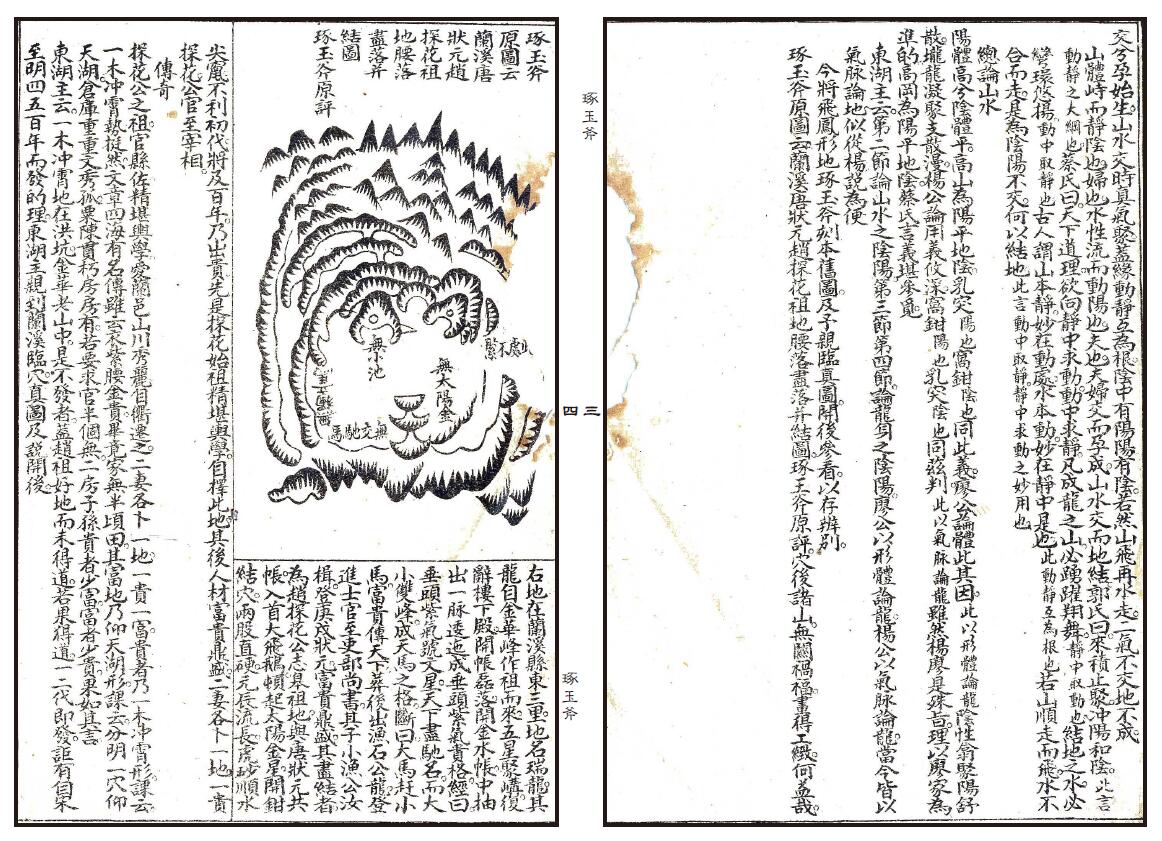 交兮孕始生山水交時真氣聚蓋緣動靜互為根陰中有陽陽有陰若然山飛再水走二氣不交地不成
山體峙而靜陰也婦也水性流而動陽也夫也夫婦交而孕成山水交而地結郭氏曰來積止聚冲陽和陰此言
動靜之大綱也蔡氏曰天下道理欲向靜中求動動中求靜凡成龍之山必踴躍翔舞靜中取動也結地之水必
灣環悠揚動中取靜也古人謂山本靜妙在動處水本動妙在靜中是也此動靜互為根也若山順走而飛水不
合而走是為陰陽不交何以結地此言動中取靜靜中求動之妙用也
總論山水
陽體高兮陰體平高山為陽平地陰乳突陽也窩鉗陰也同此義廖公論體此其因此以形體論龍陰性翕聚陽舒
散壠龍凝聚支散漫楊公論用義攸深窩鉗陽也乳突陰也同茲判此以氣脉論龍雖然楊廖是殊言理以廖家為
進的高岡為陽平地陰蔡氏言義堪參覓
東湖主云第二節論山水之陰陽第三節第四節論龍身之陰陽廖公以形體論龍楊公以氣脉論龍當今皆以
氣脉論地似從楊說為便
今將飛鳳形地琢玉斧刻本舊圖及予親臨真圖開後參看以存辨別
琢玉斧原圖云蘭溪唐狀元趙探花祖地腰落盡落并結圖琢玉斧原評穴後諸山無關禍福畫得工緻何益哉
琢玉斧
三四
琢玉斧
琢玉斧
原圖云
蘭溪唐
狀元趙
探花祖
地腰落
盡落并
結圖
琢玉斧原評
此處不緊
無太陽金
無小池
無文馳馬
右地在蘭溪縣東三里地名瑞龍其
龍自金華峰作祖而來五星聚講復
辭樓下殿開帳磊落開金水帳中抽
出一脉逶迤成垂頭紫氣貴格經曰
垂頭紫氣號文星天下盡馳名而大
小雙峰成天馬之格斷曰大馬趕小
馬富貴傳天下葬後出漁石公龍登
進士官至吏部尚書其子小漁公汝
楫登庚戌狀元富貴鼎盛其盡結者
為趙探花公志皋祖地與唐狀元共
帳入首大飛鵝頓起太陽金星開鉗
結穴兩股直硬元辰流長虎砂順水
尖竄不利初代將及百年乃出貴先是探花始祖精堪輿學自擇此地其後人材富貴鼎盛二妻各卜一地一貴
探花公官至宰相
傳奇
探花公之祖官縣佐精堪輿學愛蘭邑山川秀麗自衢遷之二妻各卜一地一貴一富貴者乃一木冲霄形課云
一木冲霄勢挺然文章四海有名傳雖云衣紫腰金貴畢竟家無半頃田其富地乃仰天湖形課云分明一穴仰
天湖倉庫重重文秀孤粟陳貫朽房房有若要求官半個無二房子孫貴者少富富者少貴果如其言
東湖主云一木冲霄地在洪坑金華老山中是不發者蓋趙祖好地而未得道若果得道一二代即發詎有自宋
至明四五百年而發的理東湖主親到蘭溪臨穴真圖及說開後